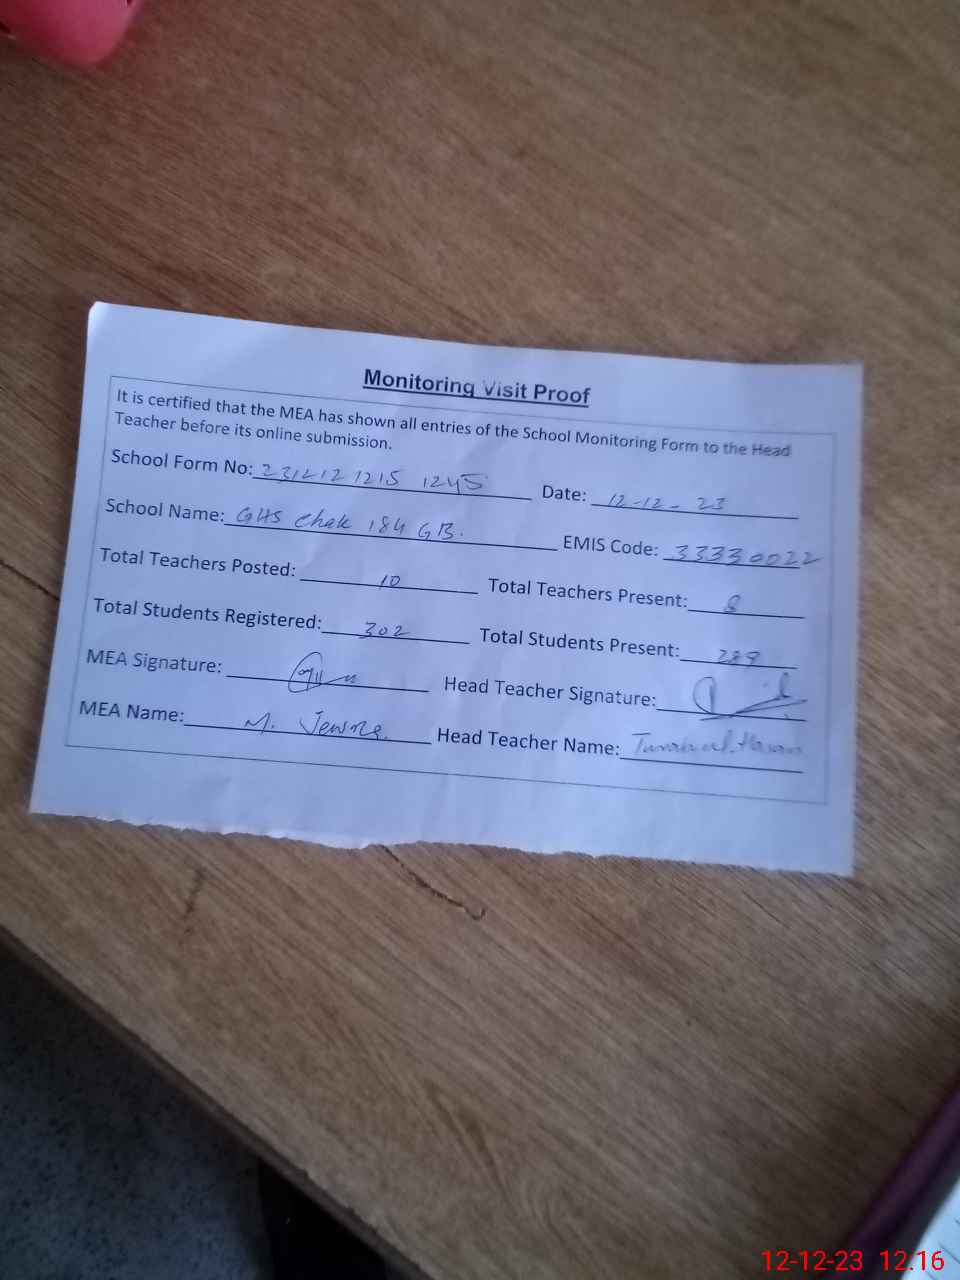 Monitoring Visit Proof
It is certified that the MEA has shown all entries of the School Monitoring Form to the Head
Teacher before its online submission.
School Form No: 231212 1215 1245 Date: 12-12-23
School Name: GHS Chak 184 GB. EMIS Code: 33330022
Total Teachers Posted: 10 Total Teachers Present: 8
Total Students Registered: 302 Total Students Present: 289
MEA Signature: Head Teacher Signature:
MEA Name: M. Head Teacher Name:
12-12-23 12.16